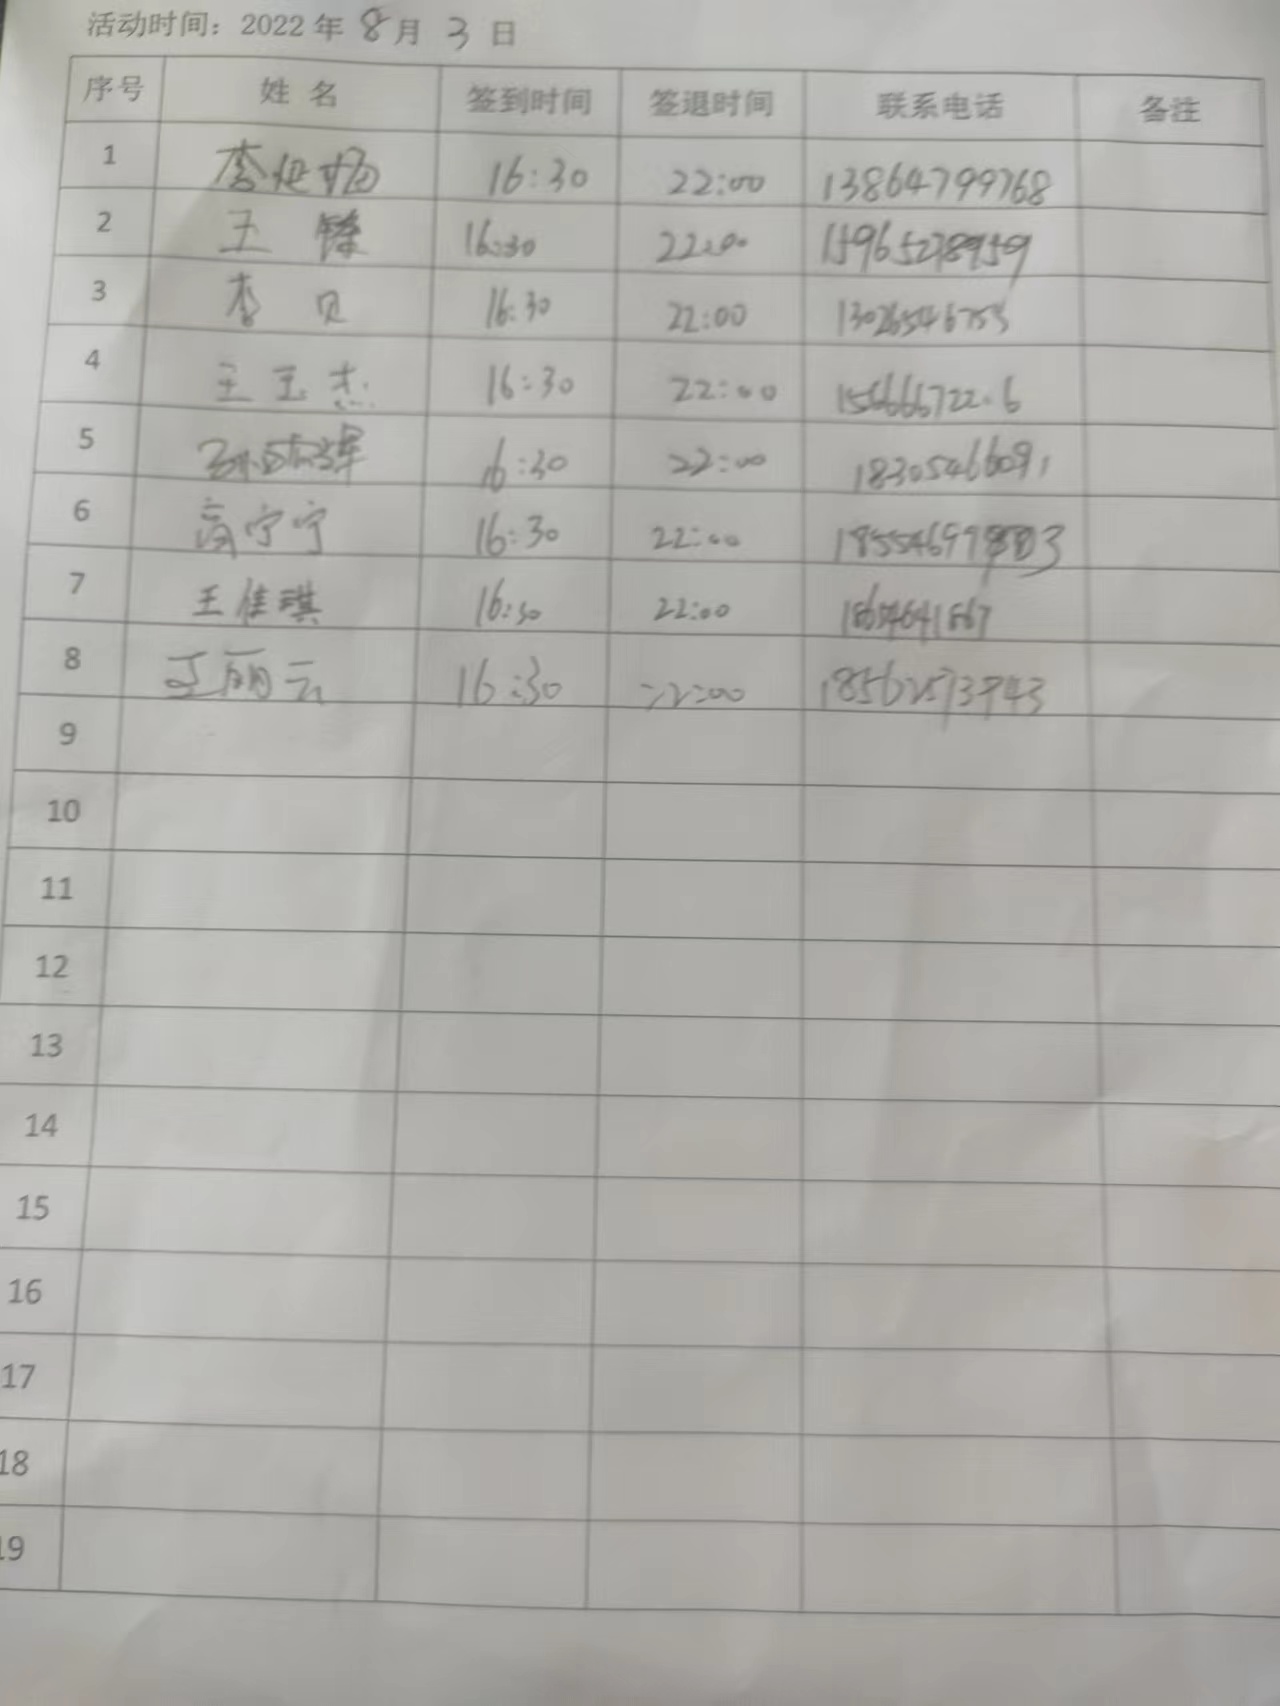 活动时间：2022年 8月 3日
序号 姓名 签到时间 签退时间 联系电话 备注
1 李延杨 16:30 22:00 13864799768
2 王锋 16:30 22:00
3 李贝 16:30 22:00
4 王玉杰 16:30 22:00
5 16:30 22:00 18305466091
6 高宁宁 16:30 22:00
7 王佳琪 16:30 22:00
8 王丽云 16:30 22:00
9
10
11
12
13
14
15
16
17
18
19